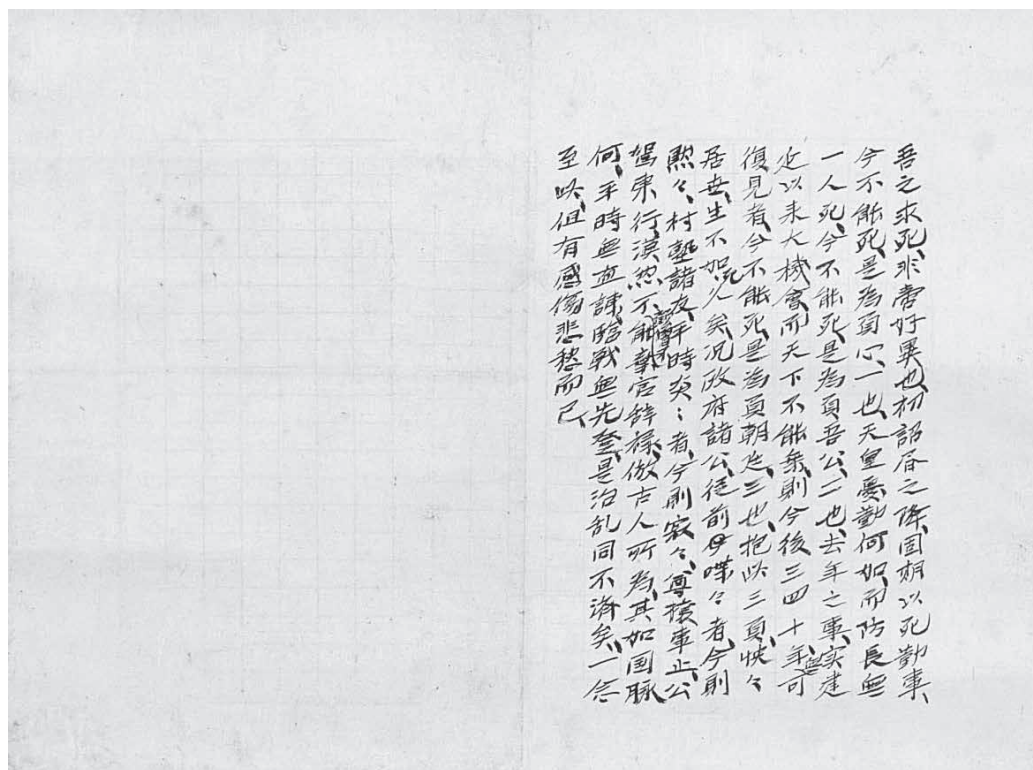 吾之求死、非啻好異也、初詔旨之降、固期以死勤事、
今不能死、是為負心、一也、天皇憂勤何如、而防長無
一人死、今不能死、是為負吾公、二也、去年之事、実建
武以来大機会、而天下不能乗、則今後三四十年、無可
復見者、今不能死、是為負朝廷、三也、抱此三負、怏々
居世、生不如死人矣、況政府諸公、従前喋々者、今則
黙々、村塾諸友、平時炎々者、今則寂々、尊攘車止、公
駕東行、漠然不能奪官辞禄、倣古人所為、其如国脈
何、平時無血諫、臨戦無先登、是治乱同不済矣、一念
至此、但有感傷悲愁而已、